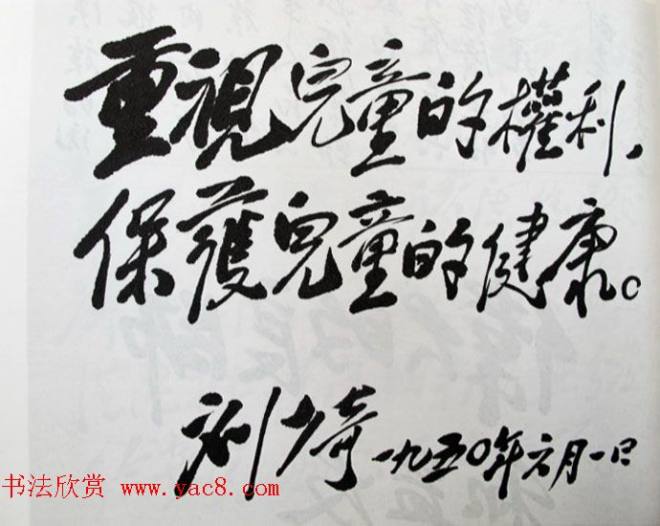 重視兒童的權利，
保護兒童的健康。
刘少奇 一九五〇年六月一日
书法欣赏 www.yac8.com